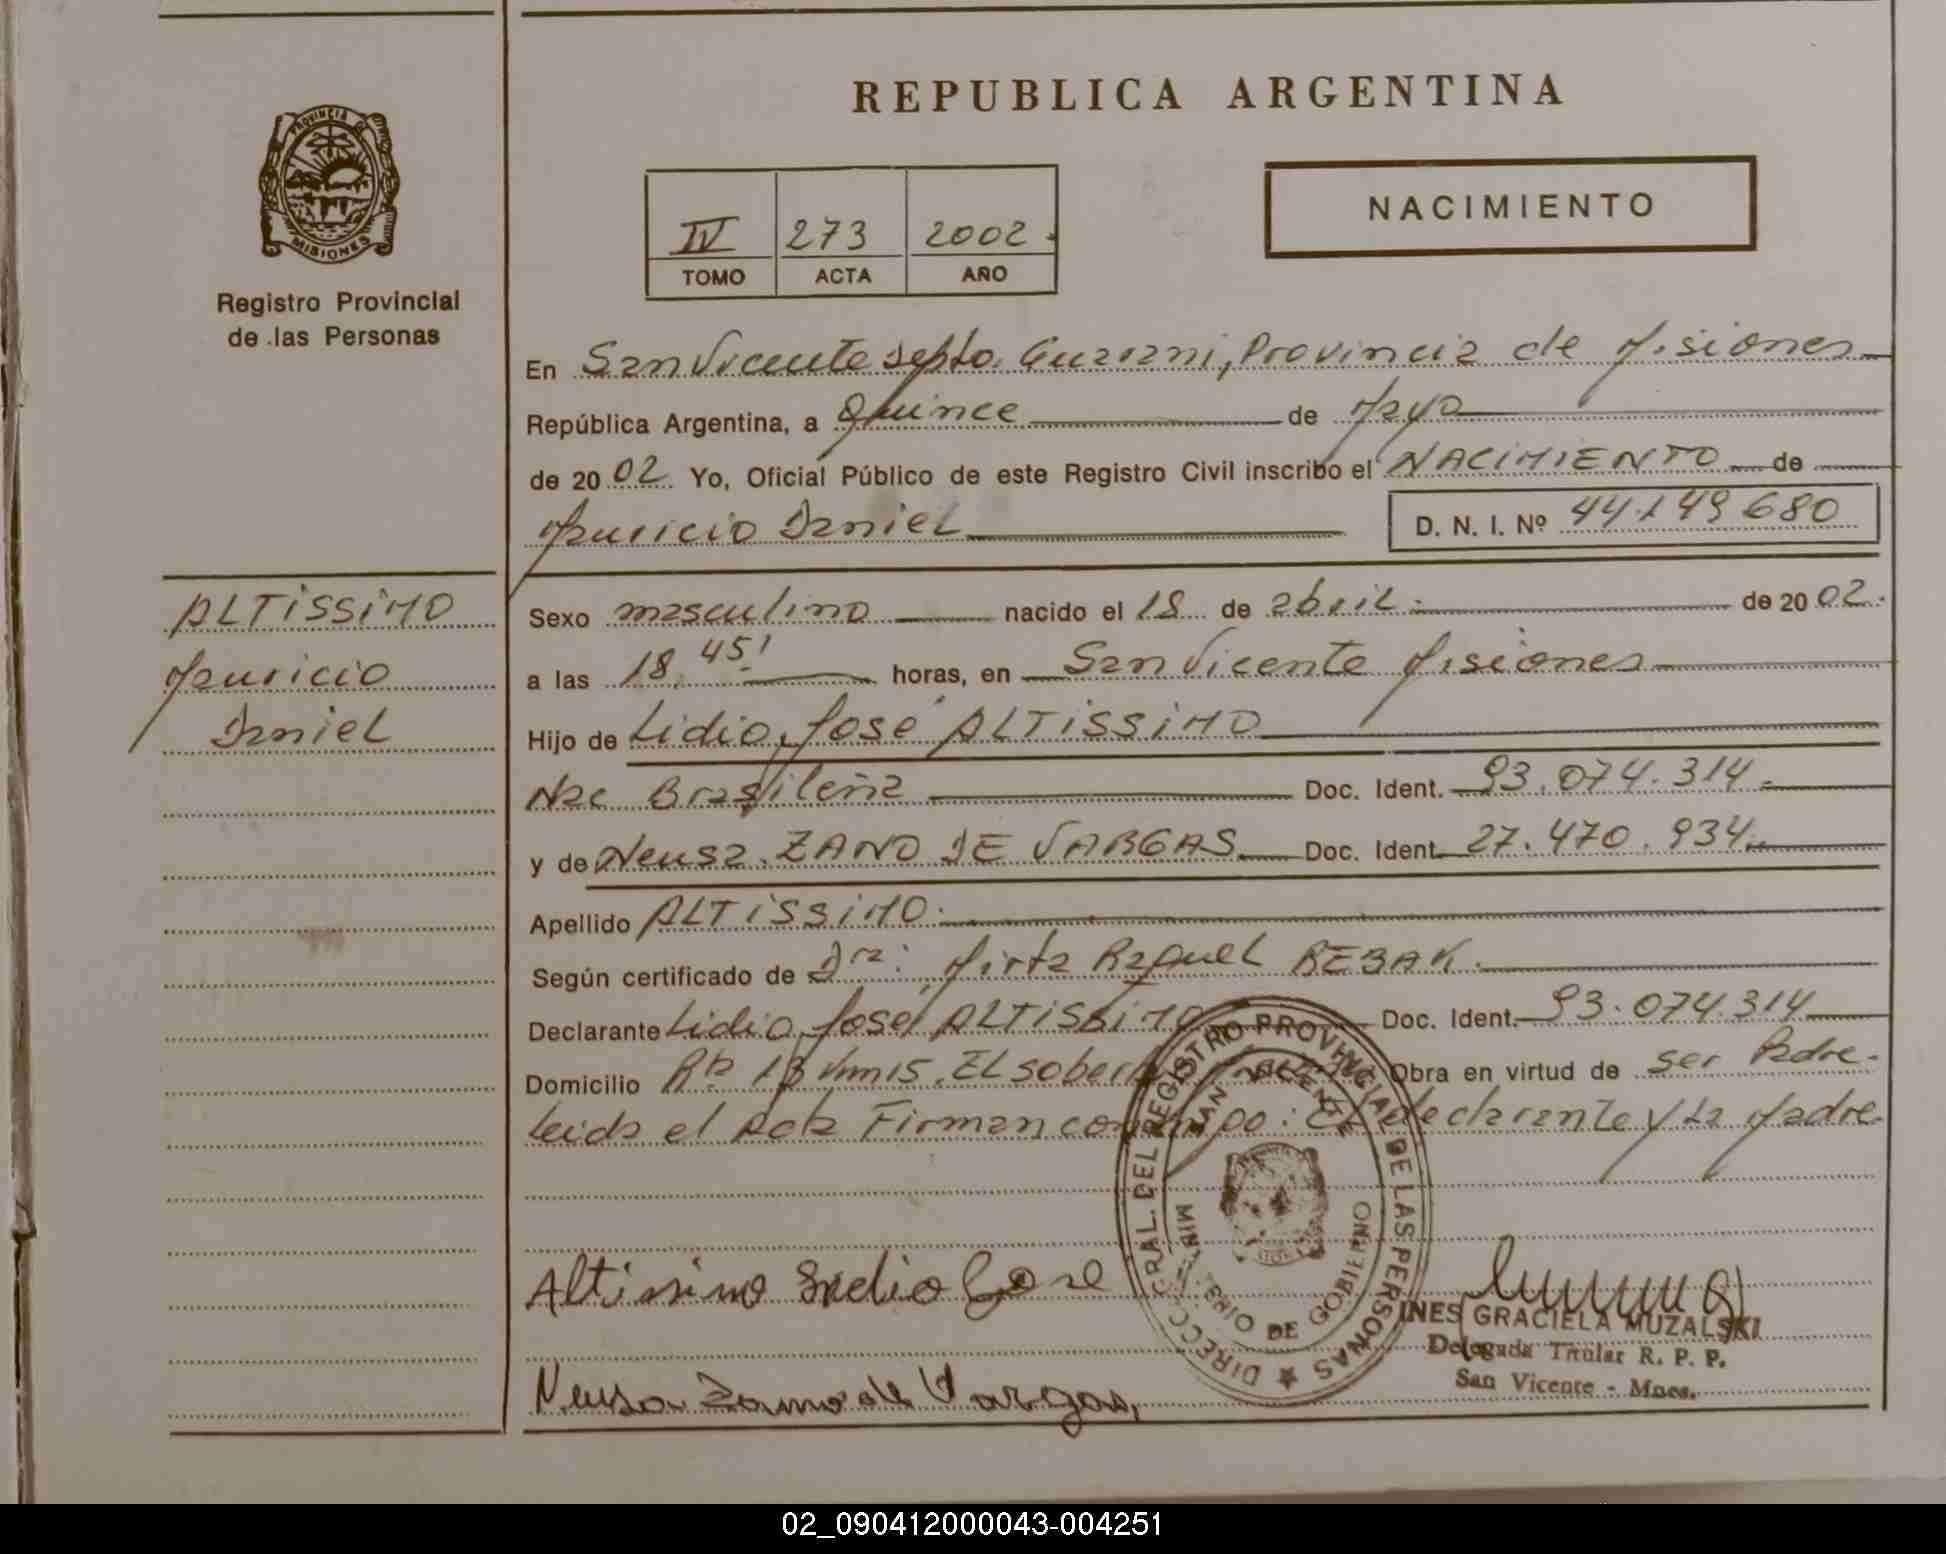 REPUBLICA ARGENTINA
PROVINCIA DE MISIONES
Registro Provincial
de las Personas
IV 273 2002
TOMO ACTA AÑO
NACIMIENTO
En San Vicente depto. Guarani, Provincia de Misiones
República Argentina, a Quince de Mayo
de 2002 Yo, Oficial Público de este Registro Civil inscribo el NACIMIENTO de
Mauricio Daniel D. N. I. Nº 44.149.680
ALTISSIMO
Mauricio
Daniel
Sexo masculino nacido el 18 de abril de 2002.
a las 18,45' horas, en San Vicente Misiones
Hijo de Lidio José ALTISSIMO
Nac Brasileña Doc. Ident. 93.074.314.
y de Neusa ZANO DE VARGAS Doc. Ident. 27.470.934
Apellido ALTISSIMO.
Según certificado de Dra: Mirta Raquel REBAK.
Declarante Lidio José ALTISSIMO Doc. Ident. 93.074.314
Domicilio Rta 13 km 15. El Obra en virtud de ser Padre.
Leida el Acta Firman conmigo: El declarante y La Madre.
DIRECC. GRAL. DEL REGISTRO PROVINCIAL DE LAS PERSONAS
SAN VICENTE
DE GOBIERNO
Altissimo Lidio Jose
INES GRACIELA MUZALSKI
Delegada Titular R. P. P.
San Vicente - Mnes.
Neusa Zano de Vargas,
02_090412000043-004251